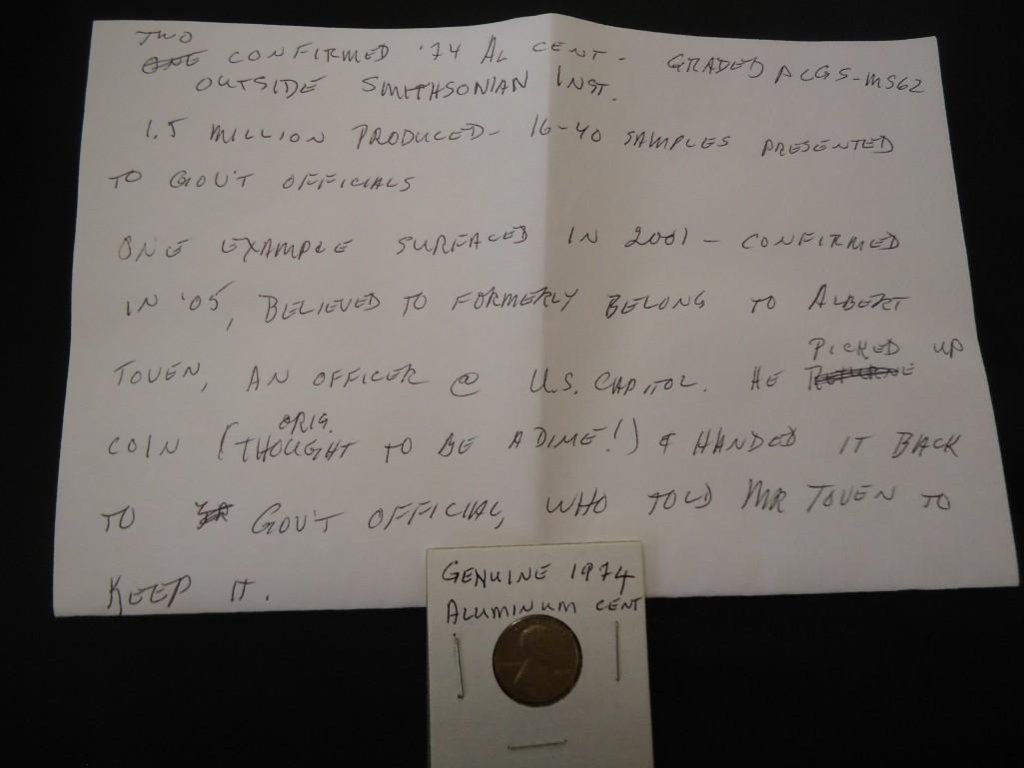 TWO
ONE CONFIRMED '74 AL CENT - GRADED PCGS-MS62
OUTSIDE SMITHSONIAN INST.
1.5 MILLION PRODUCED - 16-40 SAMPLES PRESENTED
TO GOV'T OFFICIALS
ONE EXAMPLE SURFACED IN 2001 - CONFIRMED
IN '05, BELIEVED TO FORMERLY BELONG TO ALBERT
PICKED UP
TOVEN, AN OFFICER @ U.S. CAPITOL. HE
ORIG.
COIN (THOUGHT TO BE A DIME!) & HANDED IT BACK
TO GOV'T OFFICIAL, WHO TOLD MR TOVEN TO
KEEP IT.
GENUINE 1974
ALUMINUM CENT